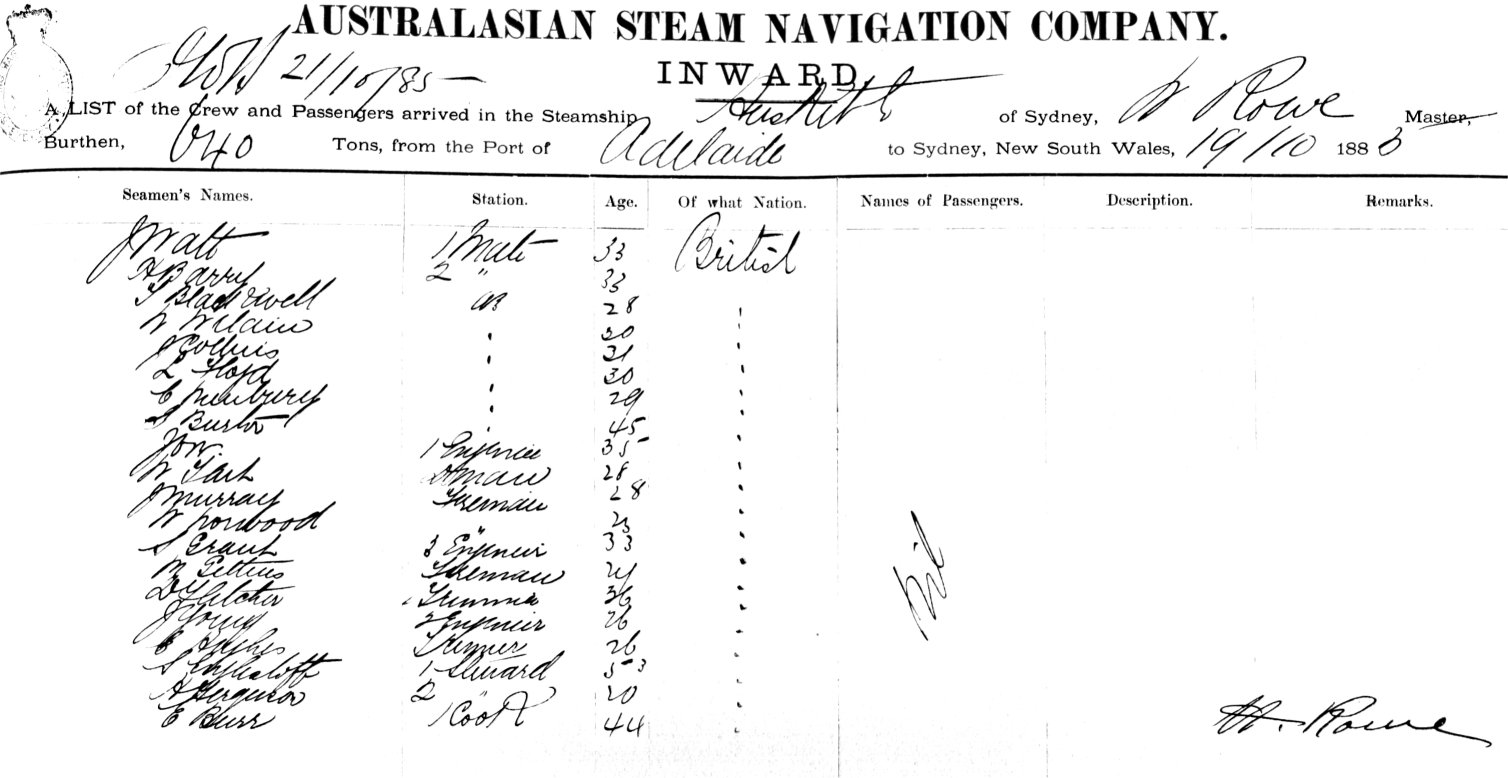 AUSTRALASIAN STEAM NAVIGATION COMPANY.
INWARD
21/10/85
A LIST of the Crew and Passengers arrived in the Steamship of Sydney, W Rowe Master,
Burthen, 640 Tons, from the Port of Adelaide to Sydney, New South Wales, 19/10 188
Seamen's Names. Station. Age. Of what Nation. Names of Passengers. Description. Remarks.
J Watt 1 Mate 33 British
H Barry 2 " 33
Blackwell AB 28
W 30
J Collins 31
L Floyd 30
C Newbury 29
S Burton 45
1 Engineer 35
W 28
J Murray Fireman 28
W "
S Grant 3 Engineer 33
Fireman
D Fletcher Trimmer 36
J Young 2 Engineer 26
C Hughes Trimmer 26
S 1 Steward 53
A Ferguson 2 " 20
E Burr 1 Cook 44
Nil
W. Rowe